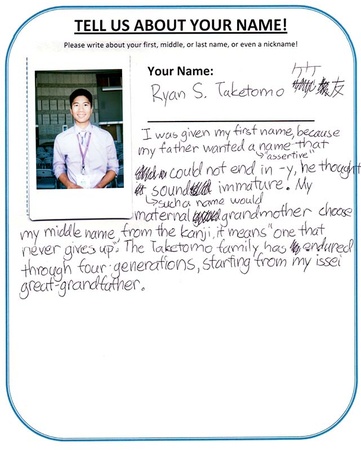 TELL US ABOUT YOUR NAME!
Please write about your first, middle, or last name, or even a nickname!
Your Name:
竹
Ryan S. Taketomo 友
I was given my first name, because
my father wanted a name that
"assertive"
could not end in -y, he thought
sound immature. My
such a name would
maternal grandmother choose
my middle name, from the kanji, it means "one that
never gives up". The Taketomo family has endured
through four generations, starting from my issei
great-grandfather.